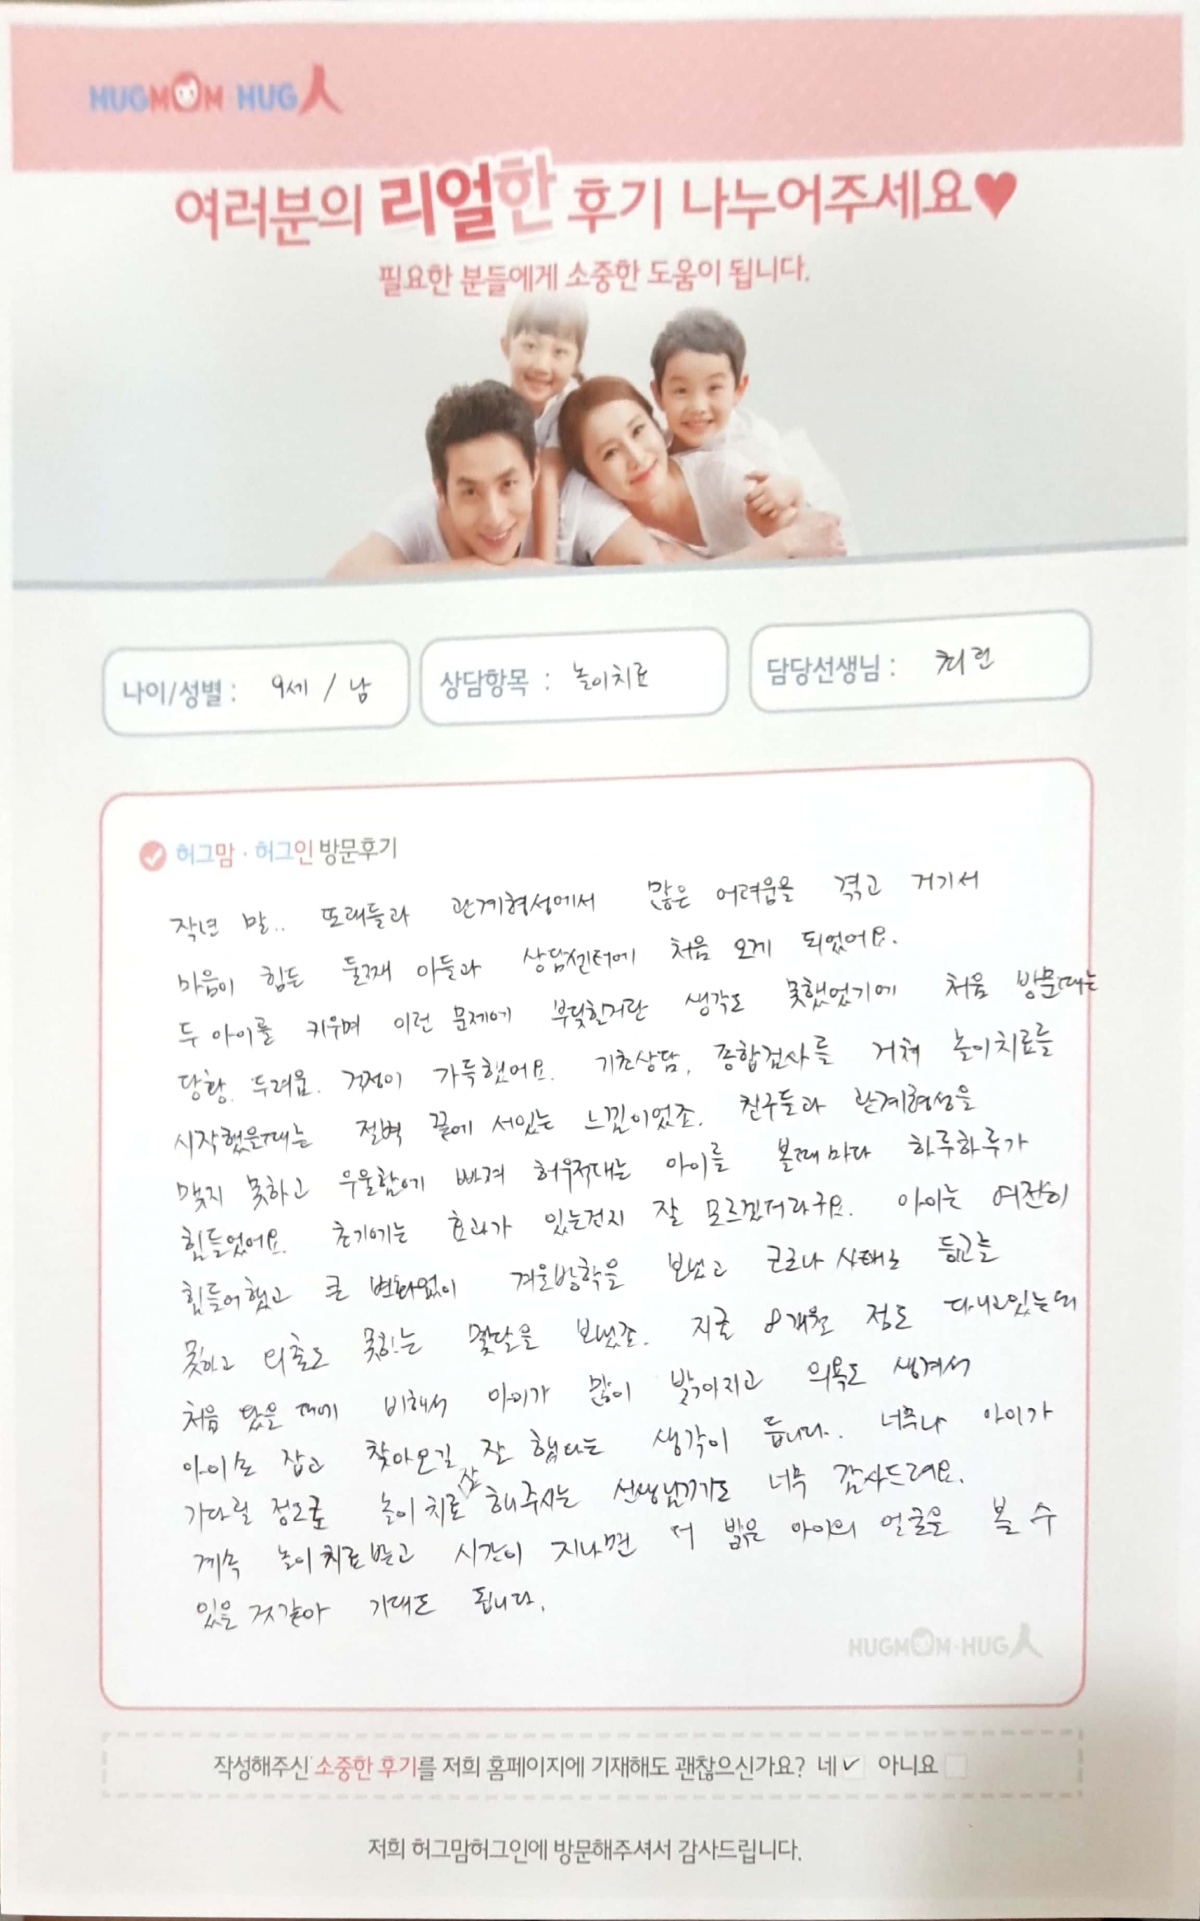 HUGMOM HUG人
여러분의 리얼한 후기 나누어주세요♥
필요한 분들에게 소중한 도움이 됩니다.
나이/성별 : 9세 / 남
상담항목 : 놀이치료
담당선생님 :
허그맘 · 허그인 방문후기
작년 말.. 또래들과 관계형성에서 많은 어려움을 겪고 거기서
마음이 힘든 둘째 아들과 상담센터에 처음 오게 되었어요.
두 아이를 키우며 이런 문제에 부딪힌거란 생각도 못했었기에 처음 방문때는
당황. 두려움. 걱정이 가득했어요. 기초상담, 종합검사를 거쳐 놀이치료를
시작했을때는 절벽 끝에 서있는 느낌이었죠. 친구들과 관계형성을
맺지 못하고 우울함에 빠져 허우적대는 아이를 볼때마다 하루하루가
힘들었어요. 초기에는 효과가 있는건지 잘 모르겠더라구요. 아이는 여전히
힘들어했고 큰 변화없이 겨울방학을 보냈고 코로나 사태로 등교를
못하고 외출도 못하는 몇달을 보냈죠. 지금 8개월 정도 다니고있는데
처음 왔을 때에 비해서 아이가 많이 밝아지고 의욕도 생겨서
아이손 잡고 찾아오길 잘 했다는 생각이 듭니다. 너무나 아이가
기다릴 정도로 놀이치료 잘 해주시는 선생님께도 너무 감사드려요.
계속 놀이치료받고 시간이 지나면 더 밝은 아이의 얼굴을 볼 수
있을 것같아 기대도 됩니다.
HUGMOM·HUG人
작성해주신 소중한 후기를 저희 홈페이지에 기재해도 괜찮으신가요? 네 ✓ 아니요
저희 허그맘허그인에 방문해주셔서 감사드립니다.